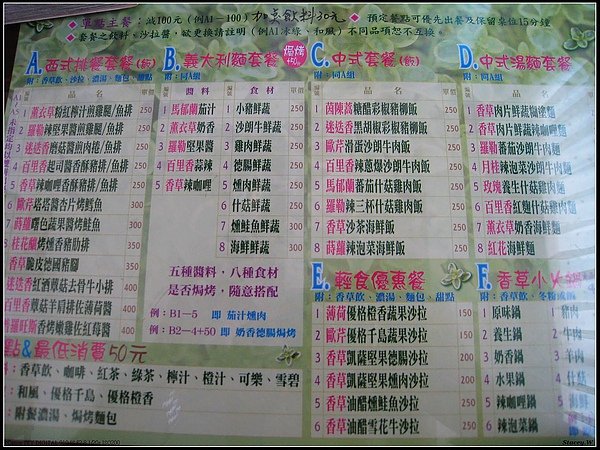 單點主餐：減100元(例A1－100)加點飲料30元
預定餐點可優先出餐及保留桌位15分鐘
套餐之飲料、沙拉醬，欲更換請註明(例A1冰綠、和風)不同品項恕不互換。
A. 西式排餐套餐(飯)
附：香草飲、沙拉、濃湯、麵包、甜點
薰衣草粉紅檸汁煎雞腿/魚排 250
羅勒堅果醬煎雞腿/魚排 250
迷迭香蘑菇醬煎肉捲/魚排 250
百里香起司醬香酥豬排/魚排 250
香草辣咖哩香酥豬排/魚排 250
歐芹塔塔醬杏片烤鱈魚
蒔蘿曙色蔬果醬烤鮭魚
桂花蘭烤燻香豬肋排
香草脆皮德國豬腳
迷迭香紅酒蘑菇去骨牛小排
百里香蘑菇羊肩排佐薄荷醬
香烤嫩雞佐紅莓醬
B. 義大利麵套餐 焗烤+50
附：同A組
醬料 食材 單價
1 馬郁蘭茄汁 1 小豬鮮蔬 250
2 薰衣草奶香 2 沙朗牛鮮蔬 250
3 羅勒堅果醬 3 雞肉鮮蔬 250
4 百里香蒜辣 4 德腸鮮蔬 250
5 香草辣咖哩 5 燻肉鮮蔬 250
6 什菇鮮蔬 250
7 燻鮭魚鮮蔬 300
8 海鮮鮮蔬 300
五種醬料，八種食材
是否焗烤，隨意搭配
例：B1－5 即 茄汁燻肉
例：B2－4+50 即 奶香德腸焗烤
C. 中式套餐(飯)
附：同A組
品名 單價
1 茵陳蒿糖醋彩椒豬柳飯 250
2 迷迭香黑胡椒彩椒豬柳飯 250
3 歐芹滑蛋沙朗牛肉飯 250
4 百里香辣蔥爆沙朗牛肉飯 250
5 馬郁蘭蕃茄什菇雞肉飯 250
6 羅勒辣三杯什菇雞肉飯 250
7 香草沙茶海鮮飯 250
8 蒔蘿辣泡菜海鮮飯 250
D. 中式湯麵套餐
附：同A組
品名
1 香草肉片鮮蔬餛飩麵
2 香草肉片鮮蔬辣咖哩麵
3 羅勒蕃茄沙朗牛肉麵
4 月桂辣泡菜沙朗牛肉麵
5 玫瑰養生什菇雞肉麵
6 百里香紅麴什菇雞肉麵
7 薰衣草奶香海鮮麵
8 紅花海鮮麵
E. 輕食優惠餐
附：香草飲、濃湯、麵包、甜點
1 薄荷優格橙香蔬果沙拉 150
2 歐芹優格千島蔬果沙拉 150
3 香草凱薩堅果德腸沙拉 200
4 香草凱薩堅果燻肉沙拉 200
5 香草油醋燻鮭魚沙拉 200
6 香草油醋雪花牛沙拉 200
F. 香草小火鍋
附：香草飲、冬粉或飯
1 原味鍋 1 豬肉
2 養生鍋 2 牛肉
3 奶香鍋 3 羊肉
4 水果鍋 4 什菇
5 辣咖哩鍋 5 海鮮
6 辣泡菜鍋
點&最低消費50元
：香草飲、咖啡、紅茶、綠茶、檸汁、橙汁、可樂、雪碧
：和風、優格千島、優格橙香
：附餐濃湯、焗烤麵包
Stacey.W